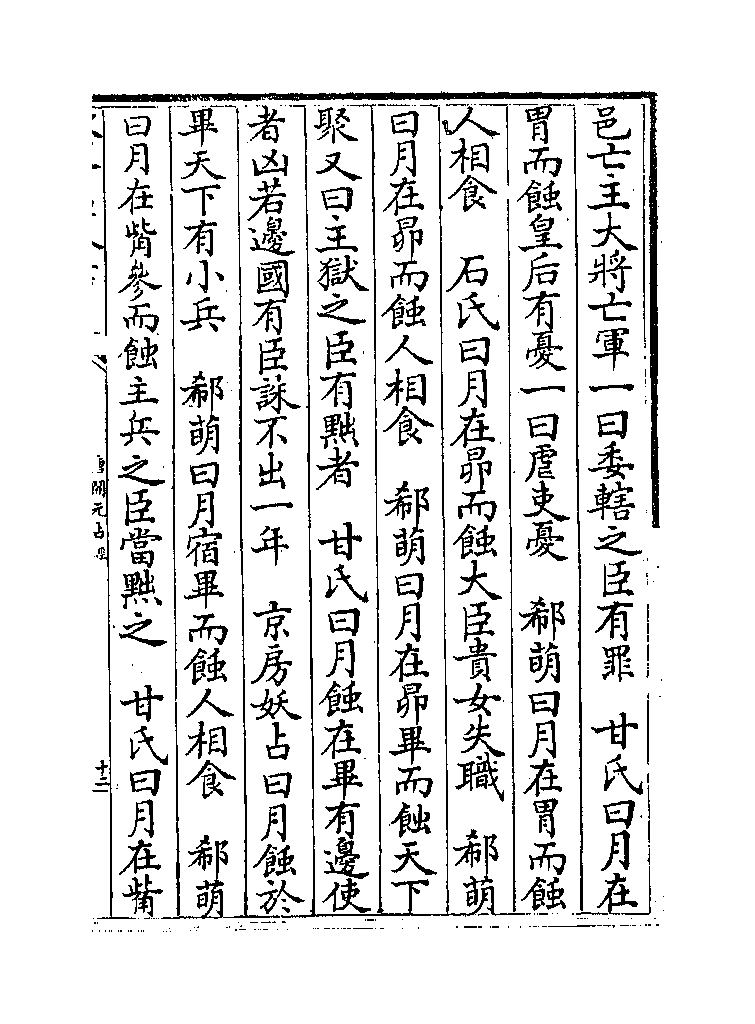 邑亡主大將亡軍一曰委轄之臣有罪　甘氏曰月在
胃而蝕皇后有憂一曰虐吏憂　郗萌曰月在胃而蝕
人相食　石氏曰月在昴而蝕大臣貴女失職　郗萌
曰月在昴而蝕人相食　郗萌曰月在昴畢而蝕天下
聚又曰主獄之臣有黜者　甘氏曰月蝕在畢有邊使
者凶若邊國有臣誅不出一年　京房妖占曰月蝕於
畢天下有小兵　郗萌曰月宿畢而蝕人相食　郗萌
曰月在觜參而蝕主兵之臣當黜之　甘氏曰月在觜
唐開元占經
十三